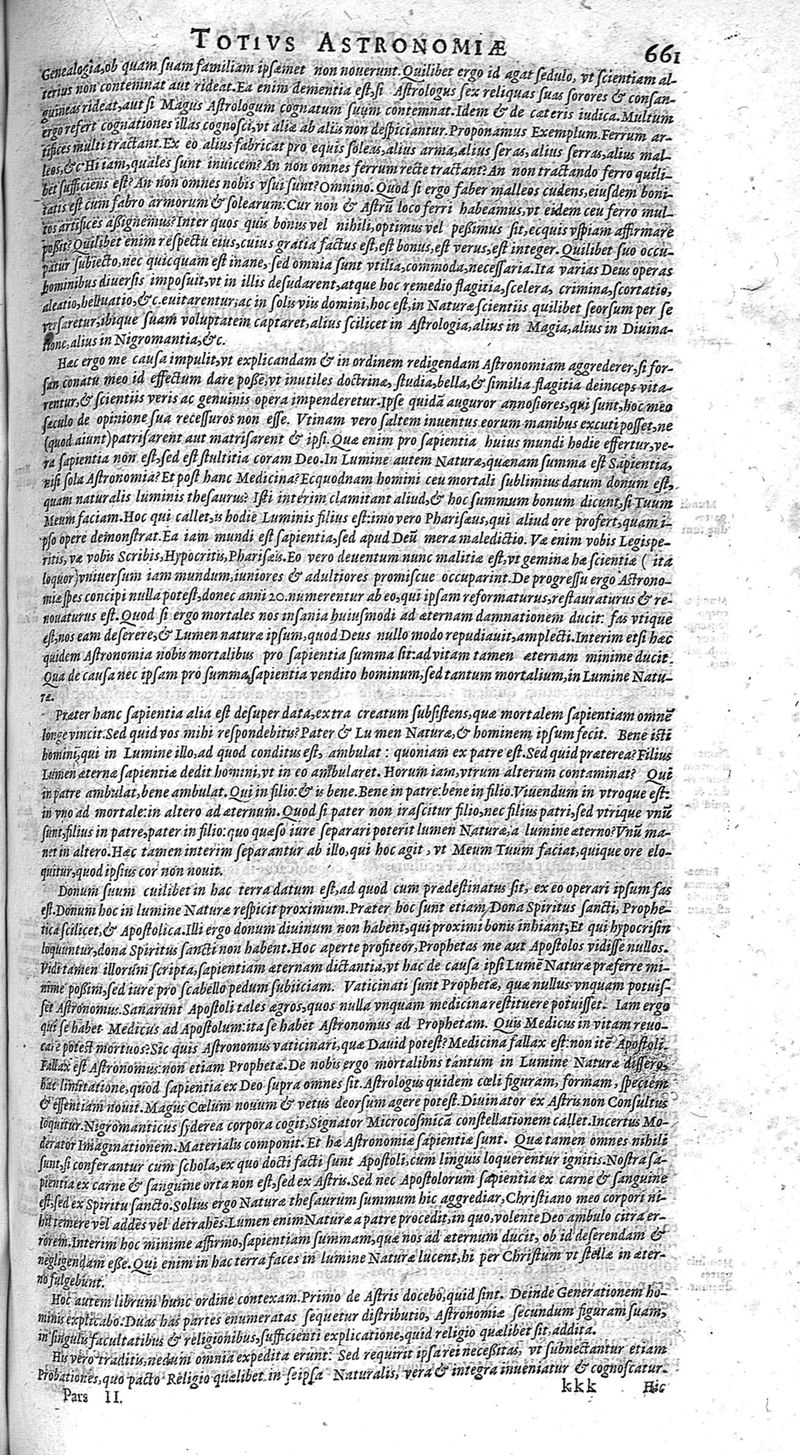 TOTIVS ASTRONOMIÆ 661
Genealogia, ob quam suam familiam ipsæmet non nouerunt. Quilibet ergo id agat sedulo, vt scientiam al-
terius non contemnat aut rideat. Ea enim dementia est, si Astrologus sex reliquas suas sorores & consan-
guineas rideat, aut si Magus Astrologum cognatum suum contemnat. Idem & de cæteris iudica. Multum
ergo refert cognationes illas cognosci, vt aliæ ab aliis non despiciantur. Proponamus Exemplum. Ferrum ar-
tifices multi tractant. Ex eo alius fabricat pro equis soleas, alius arma, alius seras, alius serras, alius mal-
leos, &c. Hi iam, quales sunt inuicem? An non omnes ferrum recte tractant? An non tractando ferro quili-
bet sufficiens est? An non omnes nobis vsui sunt? Omnino. Quod si ergo faber malleos cudens, eiusdem boni-
tatis est cum fabro armorum & solearum: Cur non & Astrū loco ferri habeamus, vt eidem ceu ferro mul-
tos artifices aßignemus? Inter quos quis bonus vel nihili, optimus vel peßimus sit, ecquis vspiam affirmare
poßit? Quilibet enim respectu eius, cuius gratia factus est, est bonus, est verus, est integer. Quilibet suo occu-
patur subiecto, nec quicquam est inane, sed omnia sunt vtilia, commoda, necessaria. Ita varias Deus operas
hominibus diuersis imposuit, vt in illis desudarent, atque hoc remedio flagitia, scelera, crimina, scortatio,
aleatio, helluatio, &c. euitarentur; ac in solis viis domini, hoc est, in Naturæ scientiis quilibet seorsum per se
versaretur, ibique suam voluptatem captaret, alius scilicet in Astrologia, alius in Magia, alius in Diuina-
tione, alius in Nigromantia, &c.
Hæc ergo me causa impulit, vt explicandam & in ordinem redigendam Astronomiam aggrederer, si for-
san conatu meo id effectum dare poßē, vt inutiles doctrinæ, studia, bella, & similia flagitia deinceps vita-
rentur, & scientiis veris ac genuinis opera impenderetur. Ipse quidā auguror annosiores, qui sunt, hoc meo
sæculo de opinione sua recessuros non esse. Vtinam vero saltem inuentus eorum manibus excuti posset, ne
(quod aiunt) patrisarent aut matrisarent & ipsi. Quæ enim pro sapientia huius mundi hodie effertur, ve-
ra sapientia non est, sed est stultitia coram Deo. In Lumine autem Naturæ, quænam summa est Sapientia,
nisi sola Astronomia? Et post hanc Medicina? Ecquodnam homini ceu mortali sublimius datum donum est,
quam naturalis luminis thesaurus? Isti interim clamitant aliud, & hoc summum bonum dicunt, si Tuum
Meum faciam. Hoc qui callet, is hodie Luminis filius est: imo vero Pharisæus, qui aliud ore profert, quam i-
pso opere demonstrat. Ea iam mundi est sapientia, sed apud Deū mera maledictio. Væ enim vobis Legispe-
ritis, væ vobis Scribis, Hypocritis, Pharisæis. Eo vero deuentum nunc malitiæ est, vt geminæ hæ scientiæ (ita
loquor) vniuersum iam mundum, iuniores & adultiores promiscue occuparint. De progressu ergo Astrono-
miæ spes concipi nulla potest, donec anni 20. numerentur ab eo, qui ipsam reformaturus, restauraturus & re-
nouaturus est. Quod si ergo mortales nos insania huiusmodi ad æternam damnationem ducit: fas vtique
est, nos eam deserere, & Lumen naturæ ipsum, quod Deus nullo modo repudiauit, amplecti. Interim etsi hæc
quidem Astronomia nobis mortalibus pro sapientia summa sit: ad vitam tamen æternam minime ducit.
Qua de causa nec ipsam pro summa sapientia vendito hominum, sed tantum mortalium, in Lumine Natu-
ræ.
Præter hanc sapientia alia est desuper data, extra creatum subsistens, quæ mortalem sapientiam omnē
longe vincit. Sed quid vos mihi respondebitis? Pater & Lumen Naturæ, & hominem ipsum fecit. Bene isti
homini, qui in Lumine illo, ad quod conditus est, ambulat: quoniam ex patre est. Sed quid præterea? Filius
Lumen æternæ sapientiæ dedit homini, vt in eo ambularet. Horum iam, vtrum alterum contaminat? Qui
in patre ambulat, bene ambulat. Qui in filio: & is bene. Bene in patre: bene in filio. Viuendum in vtroque est:
in vno ad mortale: in altero ad æternum. Quod si pater non irascitur filio, nec filius patri, sed vtrique vnū
sunt, filius in patre, pater in filio: quo quæso iure separari poterit lumen Naturæ, a lumine æterno? Vnū ma-
net in altero. Hæc tamen interim separantur ab illo, qui hoc agit, vt Meum Tuum faciat, quique ore elo-
quitur, quod ipsius cor non nouit.
Donum suum cuilibet in hac terra datum est, ad quod cum prædestinatus sit, ex eo operari ipsum fas
est. Donum hoc in lumine Naturæ respicit proximum. Præter hoc sunt etiam Dona Spiritus sancti, Prophe-
tica scilicet, & Apostolica. Illi ergo donum diuinum non habent, qui proximi bonis inhiant; Et qui hypocrisin
loquuntur, dona Spiritus sancti non habent. Hoc aperte profiteor, Prophetas me aut Apostolos vidisse nullos.
Vidi tamen illorum scripta, sapientiam æternam dictantia, vt hac de causa ipsi Lumē Naturæ præferre mi-
nime poßim, sed iure pro scabello pedum subiiciam. Vaticinati sunt Prophetæ, quæ nullus vnquam potuis-
set Astronomus. Sanarunt Apostoli tales ægros, quos nulla vnquam medicina restituere potuisset. Iam ergo
qui se habet Medicus ad Apostolum: ita se habet Astronomus ad Prophetam. Quis Medicus in vitam reuo-
care potest mortuos? Sic quis Astronomus vaticinari, quæ Dauid potest? Medicina fallax est: non itē Apostoli.
Fallax est Astronomus: non etiam Prophetæ. De nobis ergo mortalibns tantum in Lumine Naturæ differo,
hac limitatione, quod sapientia ex Deo supra omnes sit. Astrologus quidem cœli figuram, formam, speciem
& essentiam nouit. Magus Cœlum nouum & vetus deorsum agere potest. Diuinator ex Astris non Consultus
loquitur. Nigromanticus sydera corpora cogit, Signator Microcosmicā constellationem callet. Incertus Mo-
derator Imaginationem. Materialis componit. Et hæ Astronomiæ sapientiæ sunt. Quæ tamen omnes nihili
sunt, si conferantur cum schola, ex quo docti facti sunt Apostoli, cùm linguis loquerentur ignitis. Nostra sa-
pientia ex carne & sanguine orta non est, sed ex Astris. Sed nec Apostolorum sapientia ex carne & sanguine
est, sed ex Spiritu sancto. Solius ergo Naturæ thesaurum summum hic aggrediar, Christiano meo corpori ni-
hil temere vel addēs vel detrahēs. Lumen enim Naturæ a patre procedit, in quo, volente Deo ambulo citra er-
rorem. Interim hoc minime affirmo, sapientiam summam, quæ nos ad æternum ducit, ob id deserendam &
negligendam esse. Qui enim in hac terra faces in lumine Naturæ lucent, hi per Christum vt stellæ in æter-
no fulgebunt.
Hoc autem librum hunc ordine contexam. Primo de Astris docebo, quid sint. Deinde Generationem ho-
minis explicabo: Duas has partes enumeratas sequetur distributio, Astronomiæ secundum figuram suam,
in singulis facultatibus & religionibus, sufficienti explicatione, quid religio quælibet sit, addita.
His vero traditis, nedum omnia expedita erunt: Sed requirit ipsa rei neceßitas, vt subnectantur etiam
Probationes, quo pacto Religio quælibet in seipsa Naturalis, vera & integra inueniatur & cognoscatur.
Pars II. kkk Hic